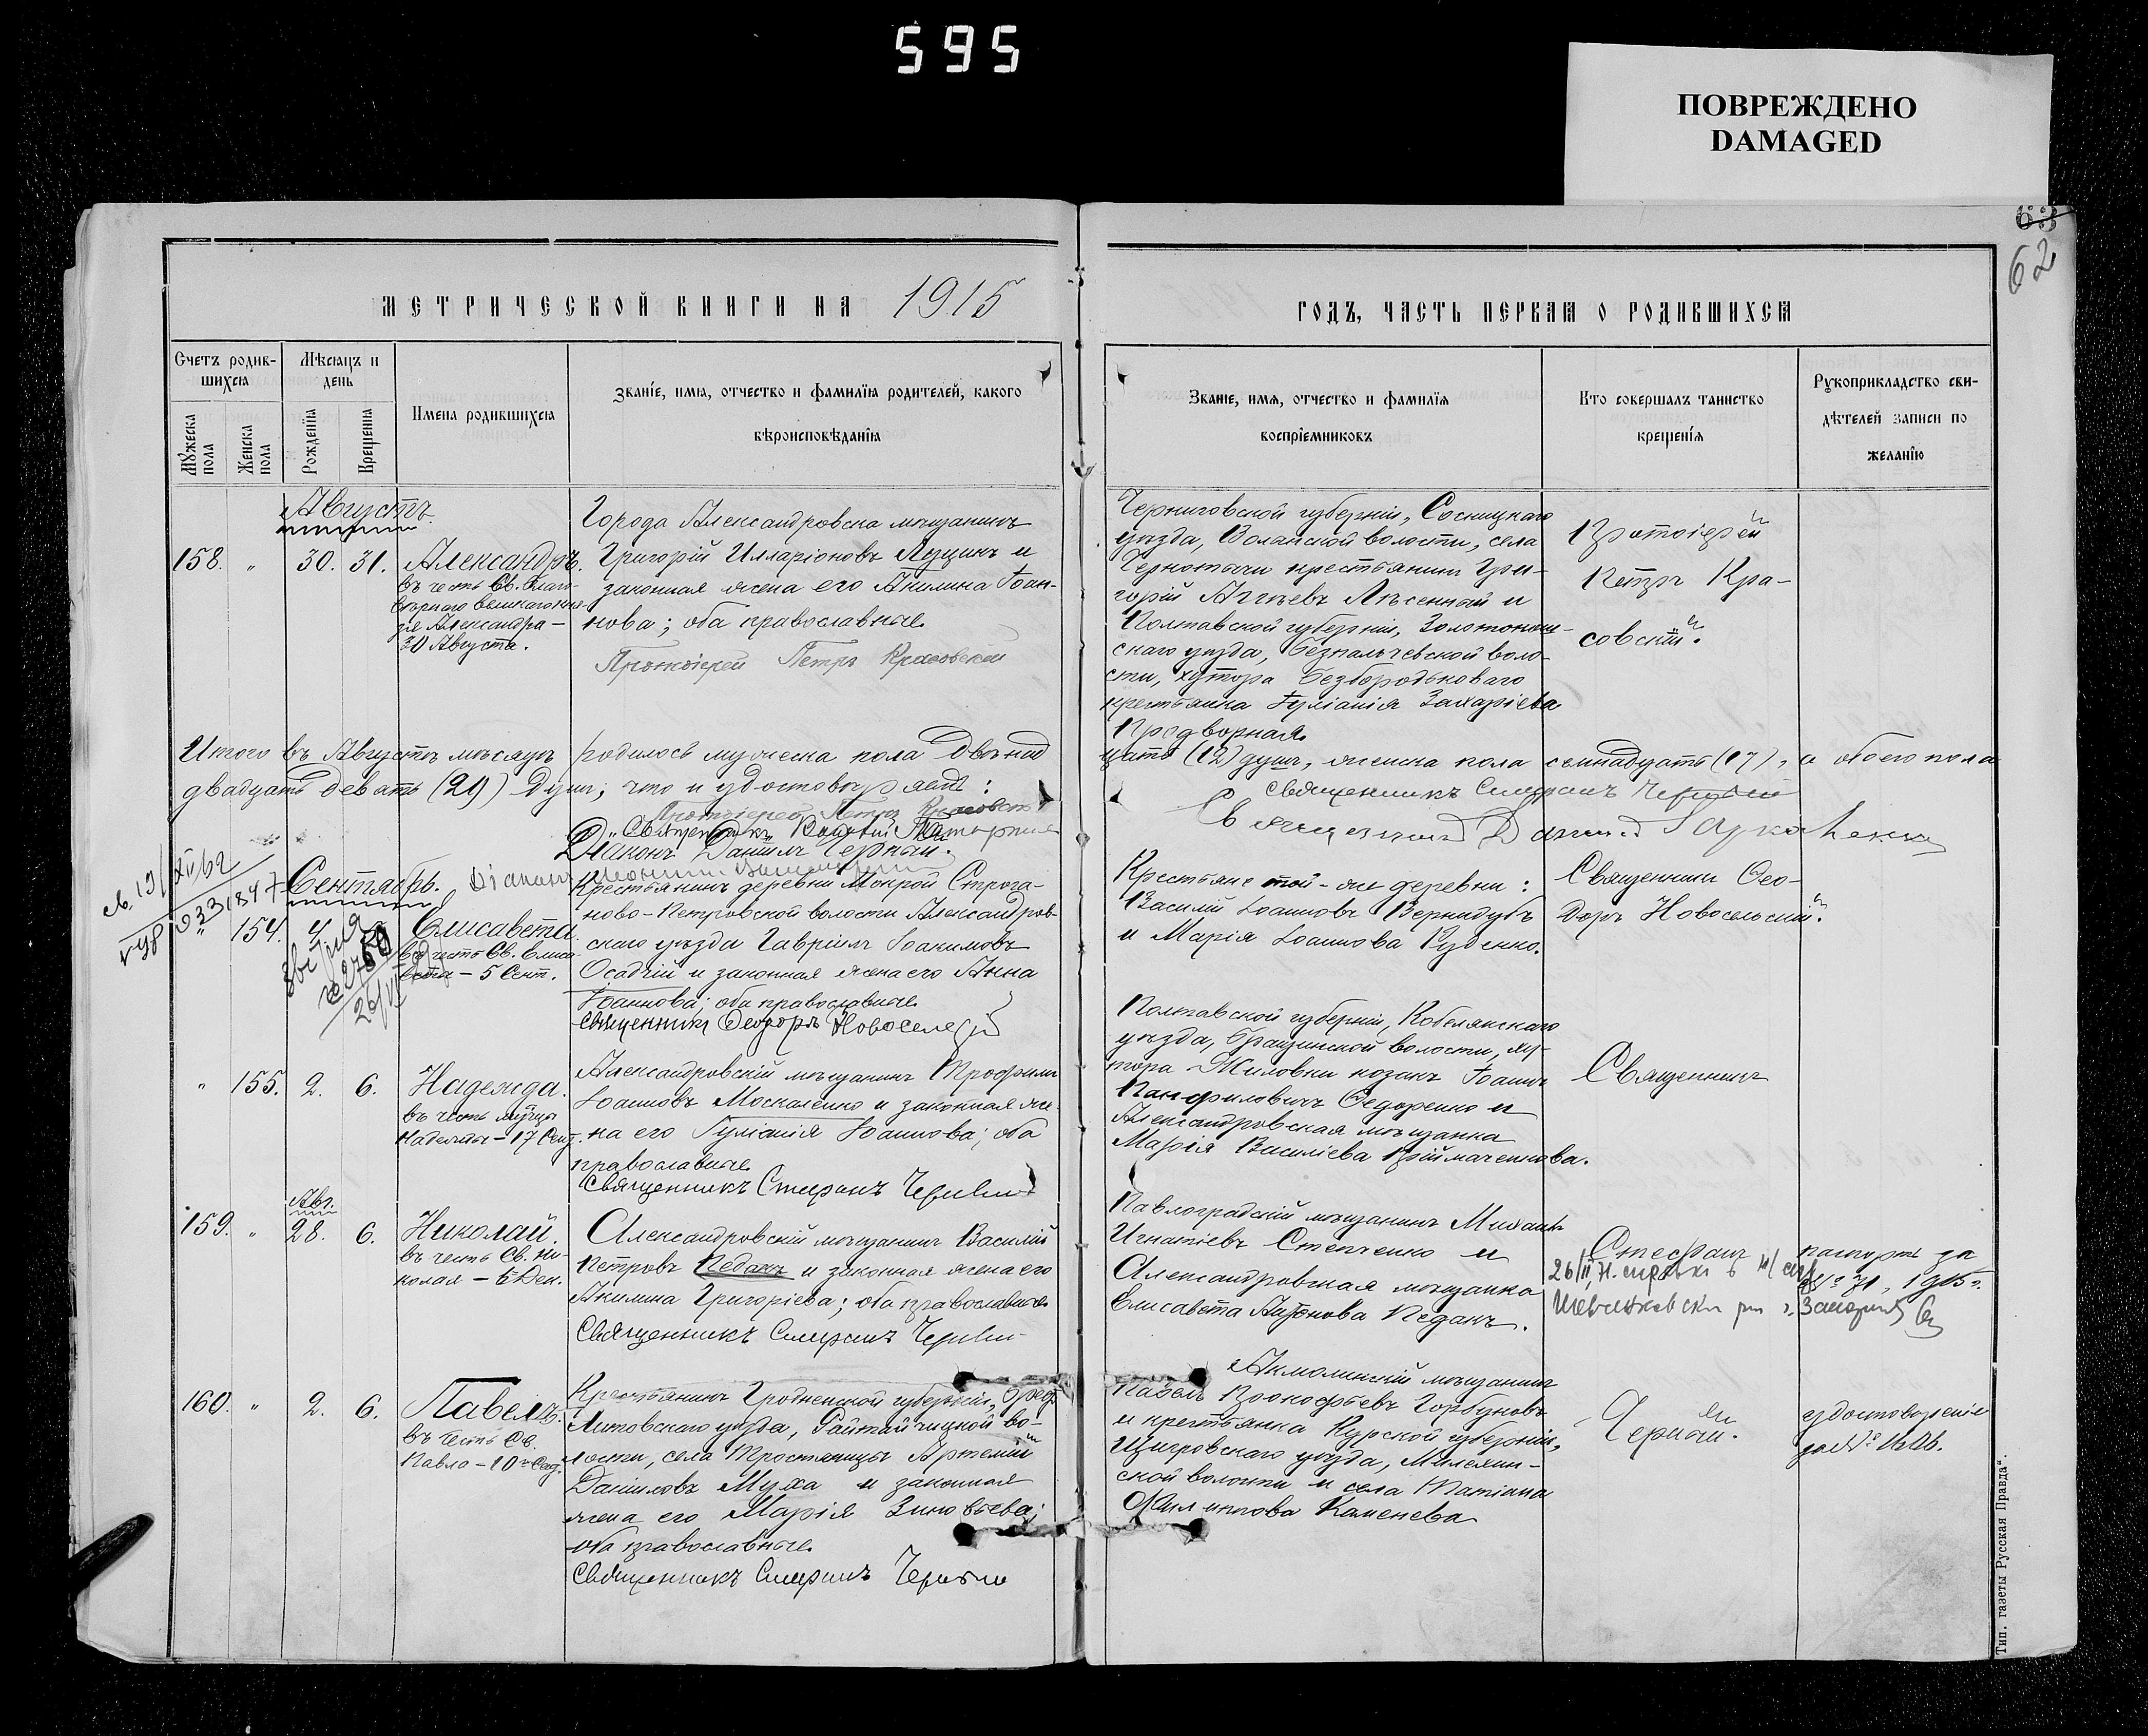 595
ПОВРЕЖДЕНО
DAMAGED
63
62
МЕТРИЧЕСКОЙ КНИГИ НА 1915
ГОДЪ, ЧАСТЬ ПЕРВАЯ О РОДИВШИХСЯ
Счетъ родив-
шихся
Мужеска
пола
Женска
пола
Мѣсяцъ и
день
Рожденїя
Крещенїя
Имена родившихся
Званїе, имя, отчество и фамилїя родителей, какого
вѣроисповѣданїя
Званїе, имя, отчество и фамилїя
воспрїемниковъ
Кто совершалъ таинство
крещенїя
Рукоприкладство сви-
дѣтелей записи по
желанїю
Августъ.
158. " 30. 31. Александръ.
въ честь Св. Благо-
вѣрнаго великаго кня-
зя Александра -
30 Августа.
Города Александровска мѣщанинъ
Григорій Илларіоновъ Лущикъ и
законная жена его Акилина Іоан-
нова; оба православные.
Протоіерей Петръ Красовскій
Черниговской губерніи, Сосницкаго
уѣзда, Волынской волости, села
Чернотичи крестьянинъ Гри-
горій Аггѣевъ Лѣсенный и
Полтавской губерніи, Золотонош-
скаго уѣзда, Безпальчевской воло-
сти, хутора Безбородьковаго
крестьянка Іуліанія Захаріева
Продворная.
Протоіерей
Петръ Кра-
совскій.
Итого въ Августѣ мѣсяцѣ родилось мужеска пола двѣнад
цать (12) душъ, женска пола семнадцать (17), а обоего пола
двадцать девять (29) душъ, что и удостовѣряемъ:
Протоіерей Петръ Красовскій
Священникъ Стефанъ Черный
Священникъ
Священникъ Даніилъ
Діаконъ Даніилъ Черный.
Діаконъ
Сентябрь.
" 154. 4. Елисавета.
въ честь Св. Елиса-
веты - 5 Сент.
Крестьянинъ деревни Мокрой Строга-
ново-Петровской волости Александров-
скаго уѣзда Гавріилъ Іоакимовъ
Осадчій и законная жена его Анна
Іоаннова; оба православные.
Священникъ Ѳеодоръ Новосельскій
Крестьяне той-же деревни:
Василій Іоанновъ Вернидубъ
и Марія Іоаннова Руденко.
Священникъ Ѳео-
доръ Новосельскій.
" 155. 2. 6. Надежда.
въ честь муч-цы
Надежды - 17 Сент.
Александровскій мѣщанинъ Трофимъ
Іоанновъ Москаленко и законная же-
на его Іуліанія Іоаннова; оба
православные.
Священникъ Стефанъ Черный
Полтавской губерніи, Кобелякскаго
уѣзда, волости, ху-
тора козакъ Іоаннъ
Панфиловичъ Ѳедоренко и
Александровская мѣщанка
Марія Василіева Приймаченкова.
Священникъ
Авг.
159. " 28. 6. Николай.
въ честь Св. Ни-
колая - 6 Дек.
Александровскій мѣщанинъ Василій
Петровъ Педанъ и законная жена его
Акилина Григоріева; оба православные
Священникъ Стефанъ Черный
Павлоградскій мѣщанинъ Михаилъ
Игнатіевъ Степченко и
Александровская мѣщанка
Елисавета Антонова Педанъ.
Стефанъ
160. " 2. 6. Павелъ.
въ честь Св.
Павла - 10 Сент.
Крестьянинъ Гродненской губерніи, Брест-
Литовскаго уѣзда, во-
лости, села Тростяницы Артемій
Даниловъ Муха и законная
жена его Марія Зиновьева;
оба православные.
Священникъ Стефанъ Черный
Акмолинскій мѣщанинъ
Павелъ Прокофьевъ Горбуновъ
и крестьянка Курской губерніи,
Щигровскаго уѣзда, Милехин-
ской волости и села Татіана
Филиппова Каменева
Черный.
удостовѣреніе
Тип. газеты Русская Правда".